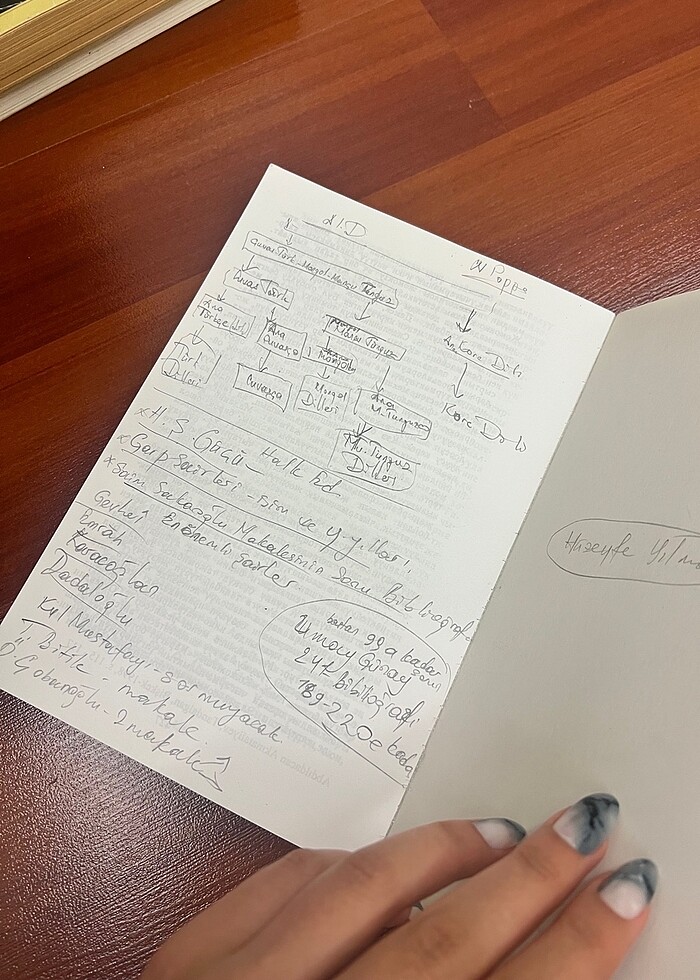 A.D
N Poppe
Çuvaş Türk-Moğol-Mançu Tunguz
Çuvaş Türk
Ana
Türkçe
Türk
Dilleri
Ana
Çuvaşça
Çuvaşça
Mançu Tunguz
Moğol
Dilleri
Ana
M. Tunguzca
Ma. Tunguz
Dilleri
Ana Kore Dili
Kore Dili
*H. Ş. Güçü - Halk Ed
*Garp Şairleri - isim ve y.yılları.
*Saim Sakaoğlu Makalesinin Sonu Bibliografya
Gevheri Enönemli Şairler
Emrah
Karacaoğlan
Dadaloğlu
Kul Mustafayı - sormuyacak
T. Bitik - makale.
Çobanoğlu - 2 makale
baştan 99 a kadar
Umay Günay
24 bibilioğrafi
189-220 e kadar
Huseyfe Yılm